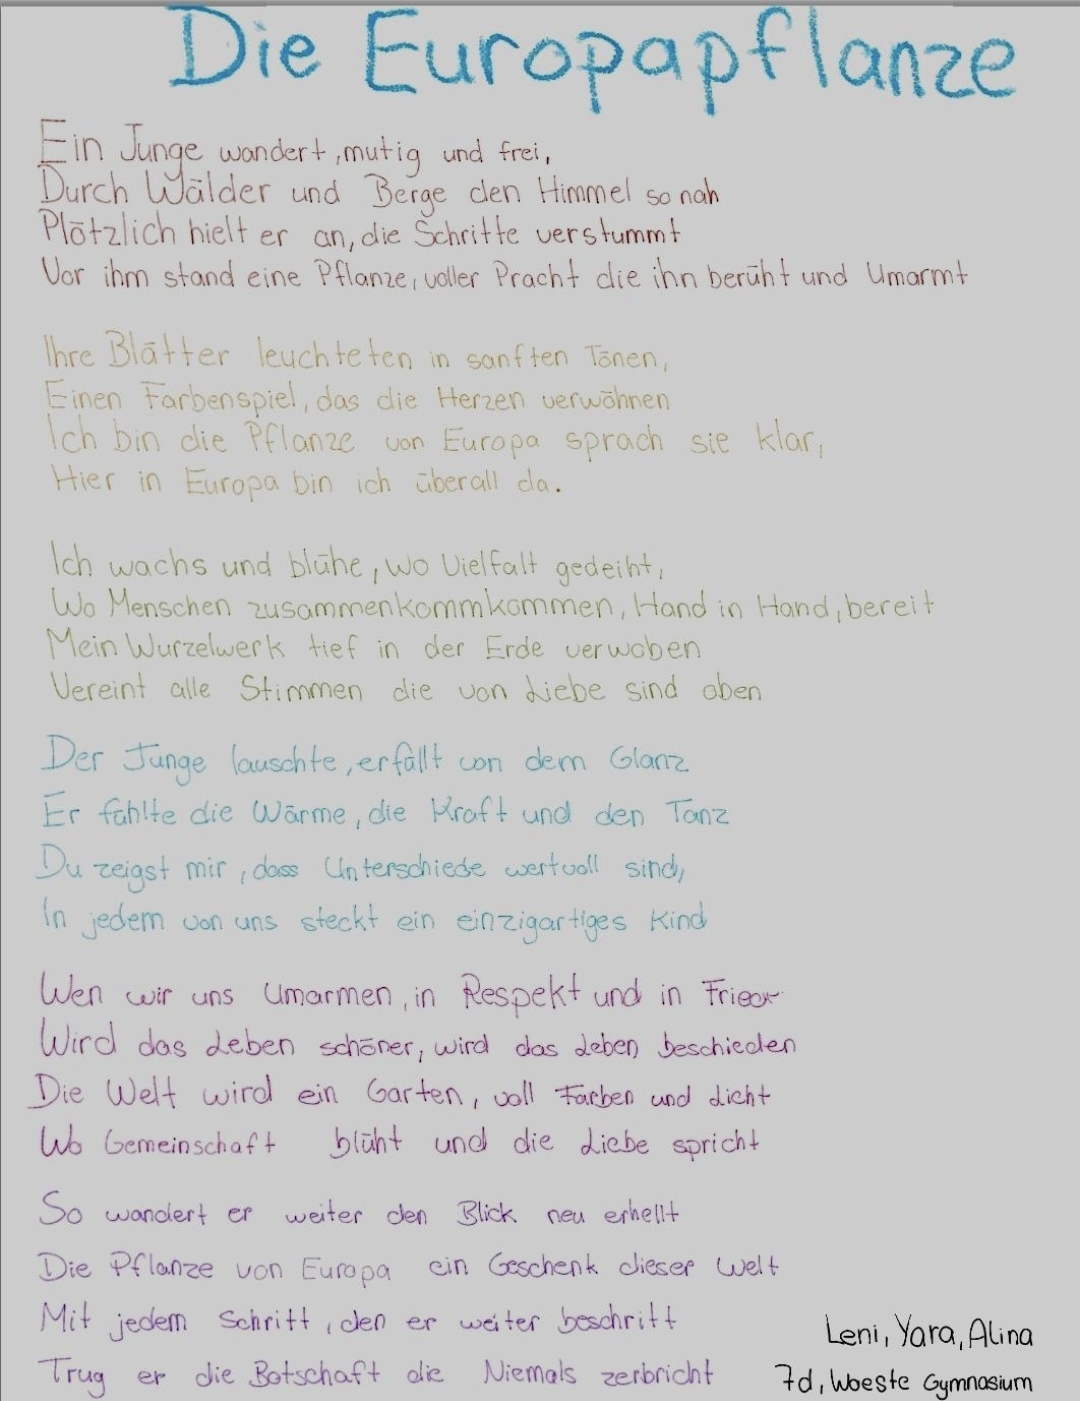 Die Europapflanze
Ein Junge wandert, mutig und frei,
Durch Wälder und Berge den Himmel so nah
Plötzlich hielt er an, die Schritte verstummt
Vor ihm stand eine Pflanze, voller Pracht die ihn berüht und Umarmt
Ihre Blätter leuchteten in sanften Tönen,
Einen Farbenspiel, das die Herzen verwöhnen
Ich bin die Pflanze von Europa sprach sie klar,
Hier in Europa bin ich überall da.
Ich wachs und blühe, wo Vielfalt gedeiht,
Wo Menschen zusammenkommkommen, Hand in Hand, bereit
Mein Wurzelwerk tief in der Erde verwoben
Vereint alle Stimmen die von Liebe sind oben
Der Junge lauschte, erfüllt von dem Glanz
Er fühlte die Wärme, die Kraft und den Tanz
Du zeigst mir, dass Unterschiede wertvoll sind,
In jedem von uns steckt ein einzigartiges Kind
Wen wir uns Umarmen, in Respekt und in
Wird das Leben schöner, wird das Leben beschieden
Die Welt wird ein Garten, voll Farben und Licht
Wo Gemeinschaft blüht und die Liebe spricht
So wandert er weiter den Blick neu erhellt
Die Pflanze von Europa ein Geschenk dieser Welt
Mit jedem Schritt, den er weiter beschritt
Trug er die Botschaft die Niemals zerbricht
Leni, Yara, Alina
7d, Woeste Gymnasium